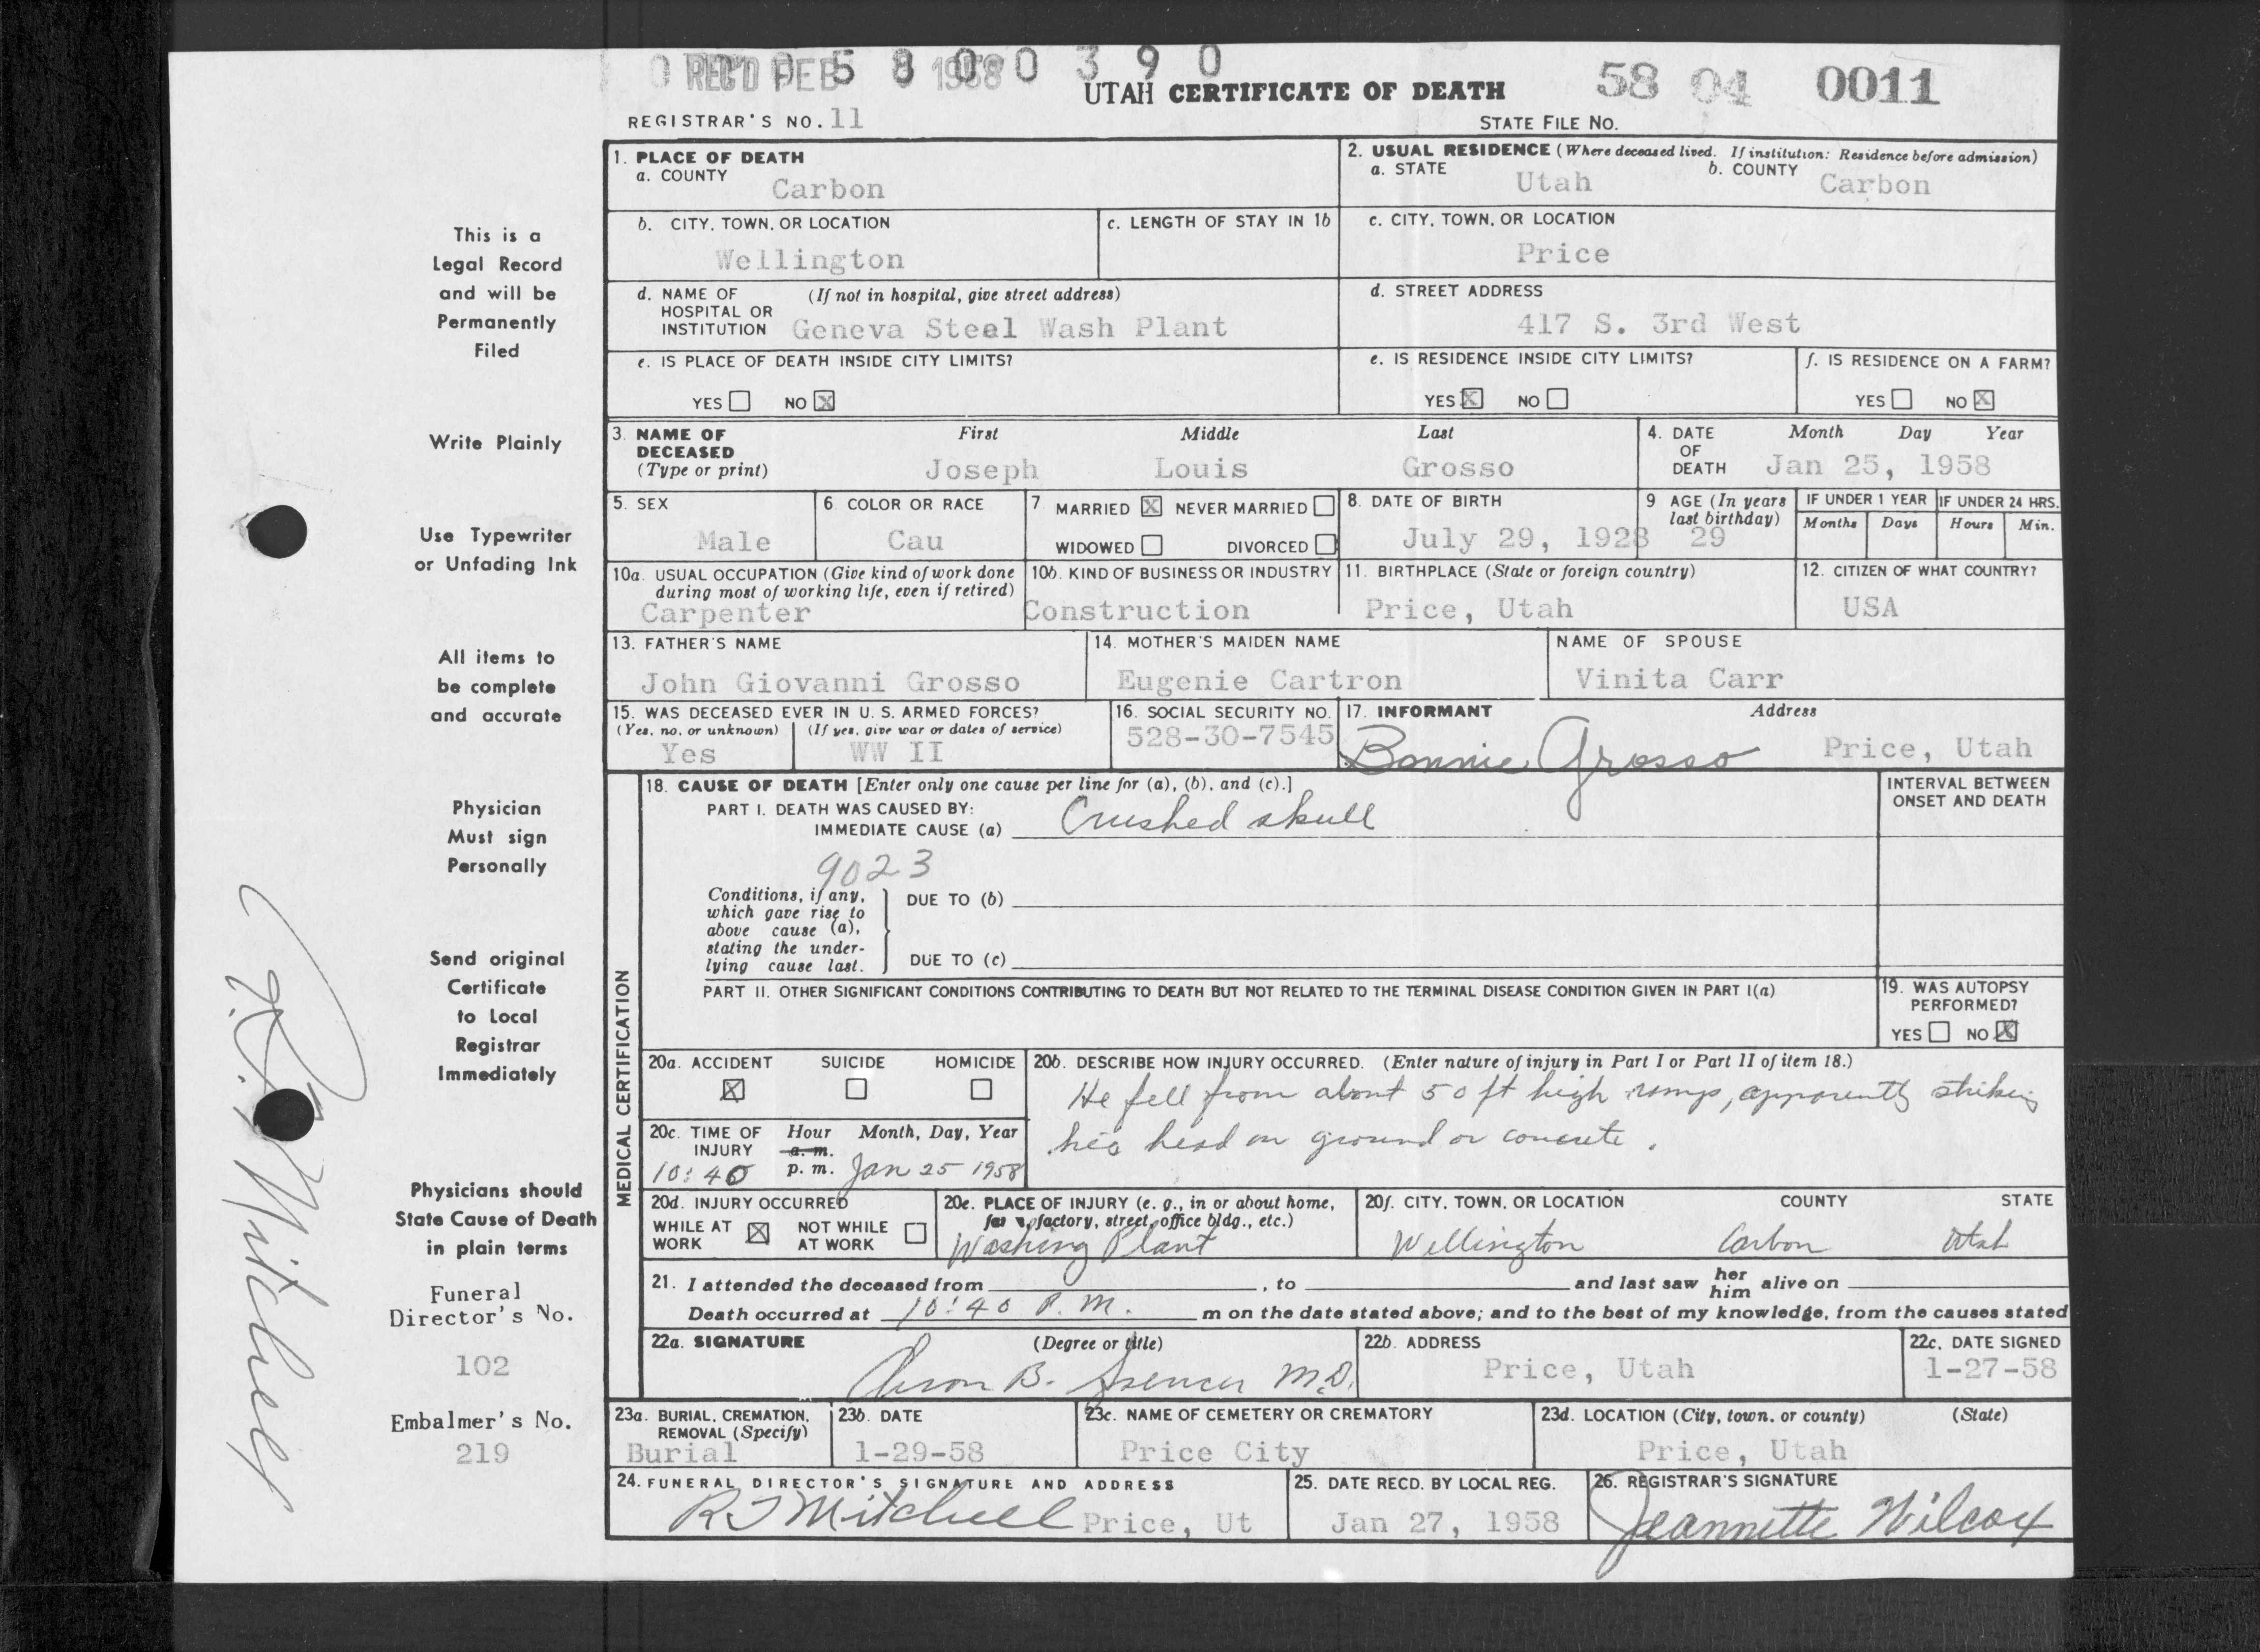 REC'D FEB 5 8 1958 0 0 3 9 0
UTAH CERTIFICATE OF DEATH
58 04 0011
REGISTRAR'S NO. 11
STATE FILE NO.
1. PLACE OF DEATH
a. COUNTY
Carbon
2. USUAL RESIDENCE (Where deceased lived. If institution: Residence before admission)
a. STATE Utah b. COUNTY Carbon
b. CITY, TOWN, OR LOCATION
Wellington
c. LENGTH OF STAY IN 1b
c. CITY, TOWN, OR LOCATION
Price
d. NAME OF HOSPITAL OR INSTITUTION (If not in hospital, give street address)
Geneva Steel Wash Plant
d. STREET ADDRESS
417 S. 3rd West
e. IS PLACE OF DEATH INSIDE CITY LIMITS?
YES NO X
e. IS RESIDENCE INSIDE CITY LIMITS?
YES X NO
f. IS RESIDENCE ON A FARM?
YES NO X
3. NAME OF DECEASED (Type or print)
First Middle Last
Joseph Louis Grosso
4. DATE OF DEATH Month Day Year
Jan 25, 1958
5. SEX
Male
6. COLOR OR RACE
Cau
7 MARRIED X NEVER MARRIED
WIDOWED DIVORCED
8. DATE OF BIRTH
July 29, 1928
9 AGE (In years last birthday)
29
IF UNDER 1 YEAR
Months Days
IF UNDER 24 HRS.
Hours Min.
10a. USUAL OCCUPATION (Give kind of work done during most of working life, even if retired)
Carpenter
10b. KIND OF BUSINESS OR INDUSTRY
Construction
11. BIRTHPLACE (State or foreign country)
Price, Utah
12. CITIZEN OF WHAT COUNTRY?
USA
13. FATHER'S NAME
John Giovanni Grosso
14. MOTHER'S MAIDEN NAME
Eugenie Cartron
NAME OF SPOUSE
Vinita Carr
15. WAS DECEASED EVER IN U. S. ARMED FORCES?
(Yes, no, or unknown) (If yes, give war or dates of service)
Yes WW II
16. SOCIAL SECURITY NO.
528-30-7545
17. INFORMANT Address
Bonnie Grosso Price, Utah
MEDICAL CERTIFICATION
18. CAUSE OF DEATH [Enter only one cause per line for (a), (b), and (c).]
PART I. DEATH WAS CAUSED BY:
IMMEDIATE CAUSE (a) Crushed skull
9023
INTERVAL BETWEEN ONSET AND DEATH
Conditions, if any, which gave rise to above cause (a), stating the underlying cause last.
DUE TO (b)
DUE TO (c)
PART II. OTHER SIGNIFICANT CONDITIONS CONTRIBUTING TO DEATH BUT NOT RELATED TO THE TERMINAL DISEASE CONDITION GIVEN IN PART I(a)
19. WAS AUTOPSY PERFORMED?
YES NO X
20a. ACCIDENT SUICIDE HOMICIDE
X
20b. DESCRIBE HOW INJURY OCCURRED. (Enter nature of injury in Part I or Part II of item 18.)
He fell from about 50 ft high ramp, apparently striking
his head on ground or concrete.
20c. TIME OF INJURY Hour Month, Day, Year
a. m.
10:40 p. m. Jan 25 1958
20d. INJURY OCCURRED
WHILE AT WORK X NOT WHILE AT WORK
20e. PLACE OF INJURY (e. g., in or about home, factory, street, office bldg., etc.)
Washing Plant
20f. CITY, TOWN, OR LOCATION COUNTY STATE
Wellington Carbon Utah
21. I attended the deceased from , to and last saw her him alive on
Death occurred at 10:40 P. M. m on the date stated above; and to the best of my knowledge, from the causes stated
22a. SIGNATURE (Degree or title)
B. Spencer M.D.
22b. ADDRESS
Price, Utah
22c. DATE SIGNED
1-27-58
23a. BURIAL, CREMATION, REMOVAL (Specify)
Burial
23b. DATE
1-29-58
23c. NAME OF CEMETERY OR CREMATORY
Price City
23d. LOCATION (City, town, or county) (State)
Price, Utah
24. FUNERAL DIRECTOR'S SIGNATURE AND ADDRESS
R J Mitchell Price, Ut
25. DATE RECD. BY LOCAL REG.
Jan 27, 1958
26. REGISTRAR'S SIGNATURE
Jeannette Wilcox
This is a
Legal Record
and will be
Permanently
Filed
Write Plainly
Use Typewriter
or Unfading Ink
All items to
be complete
and accurate
Physician
Must sign
Personally
Send original
Certificate
to Local
Registrar
Immediately
Physicians should
State Cause of Death
in plain terms
Funeral
Director's No.
102
Embalmer's No.
219
Mitchell